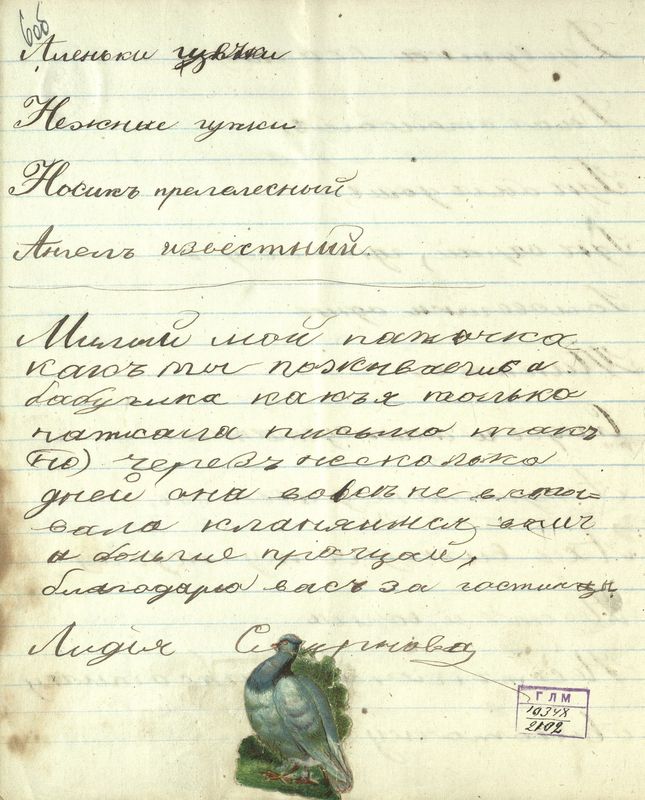 606
Аленьки губки
Нежные губки
Носикъ прелелесный
Ангелъ известный
Милый мой папочка
какъ ты поживаешь а
бабушка какъ я только
письмо такъ
через несколько
дней она вовсе не
вала кланяимся
и больше прощай,
благодарю васъ за гостинцы
Лидия Смирнова
ГЛМ